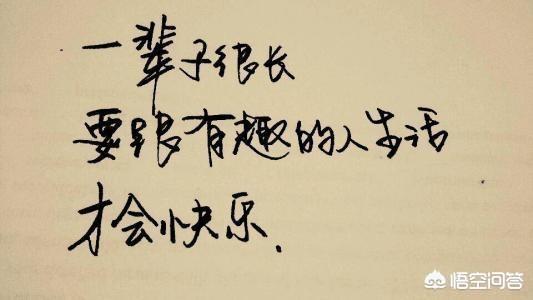 一辈子很长
要跟有趣的人生活
才会快乐.
悟空问答